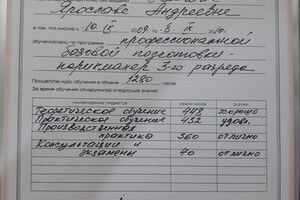 Ярославе Андреевне
в том, что он(она) с 10. IX 09 г. 8. IX 10.
обучался(лась) по программе профессиональной
базовой подготовки -
парикмахер 3-го разряда
Прошел(ла) курс обучения в объеме 1280 часов
За время обучения обнаружил(ла) следующие знания:
НАИМЕНОВАНИЕ ПРЕДМЕТОВ ОБЪЕМ ЧАСОВ ОЦЕНКА
Теоретическое обучение 448 хорошо
Практическое обучение 432 удовл.
Производственная
практика 360 отлично
Консультации и
экзамены 40 отлично